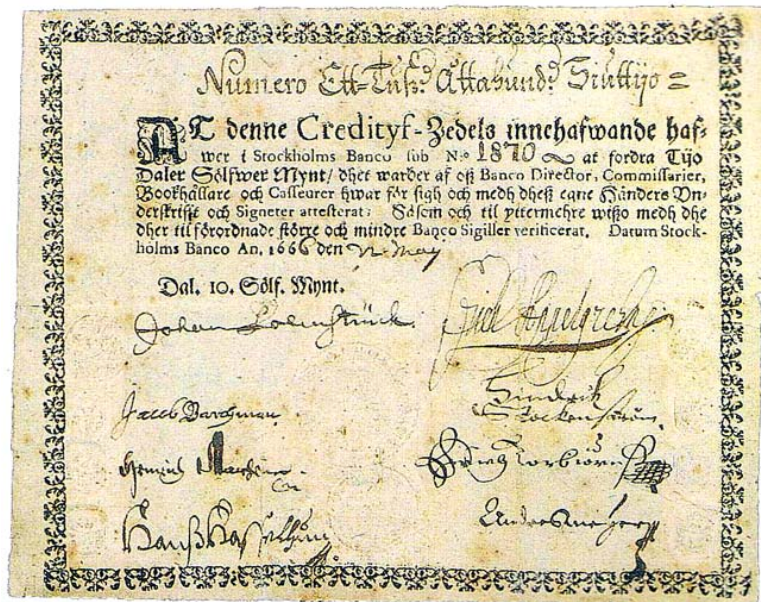 Numero Ett-Tuß.de Åttahund.de Siuttijo =
AT denne Credityf-Zedels innehafwande haf-
wer i Stockholms Banco sub N.o 1870 at fordra Tijo
Daler Sölfwer Mynt/ dhet warder af oß Banco Director, Commissarier,
Bookhållare och Casseurer hwar för sigh och medh dheß egne Händers Vn-
derskrifft och Signeter attesterat; Såsom och til ytermehre wißo medh dhe
dher til förordnade större och mindre Banco Sigiller verificerat. Datum Stock-
holms Banco An. 1666 den May
Dal. 10. Sölf. Mynt.
Johan
Jacob
Hindrik
Stockenström